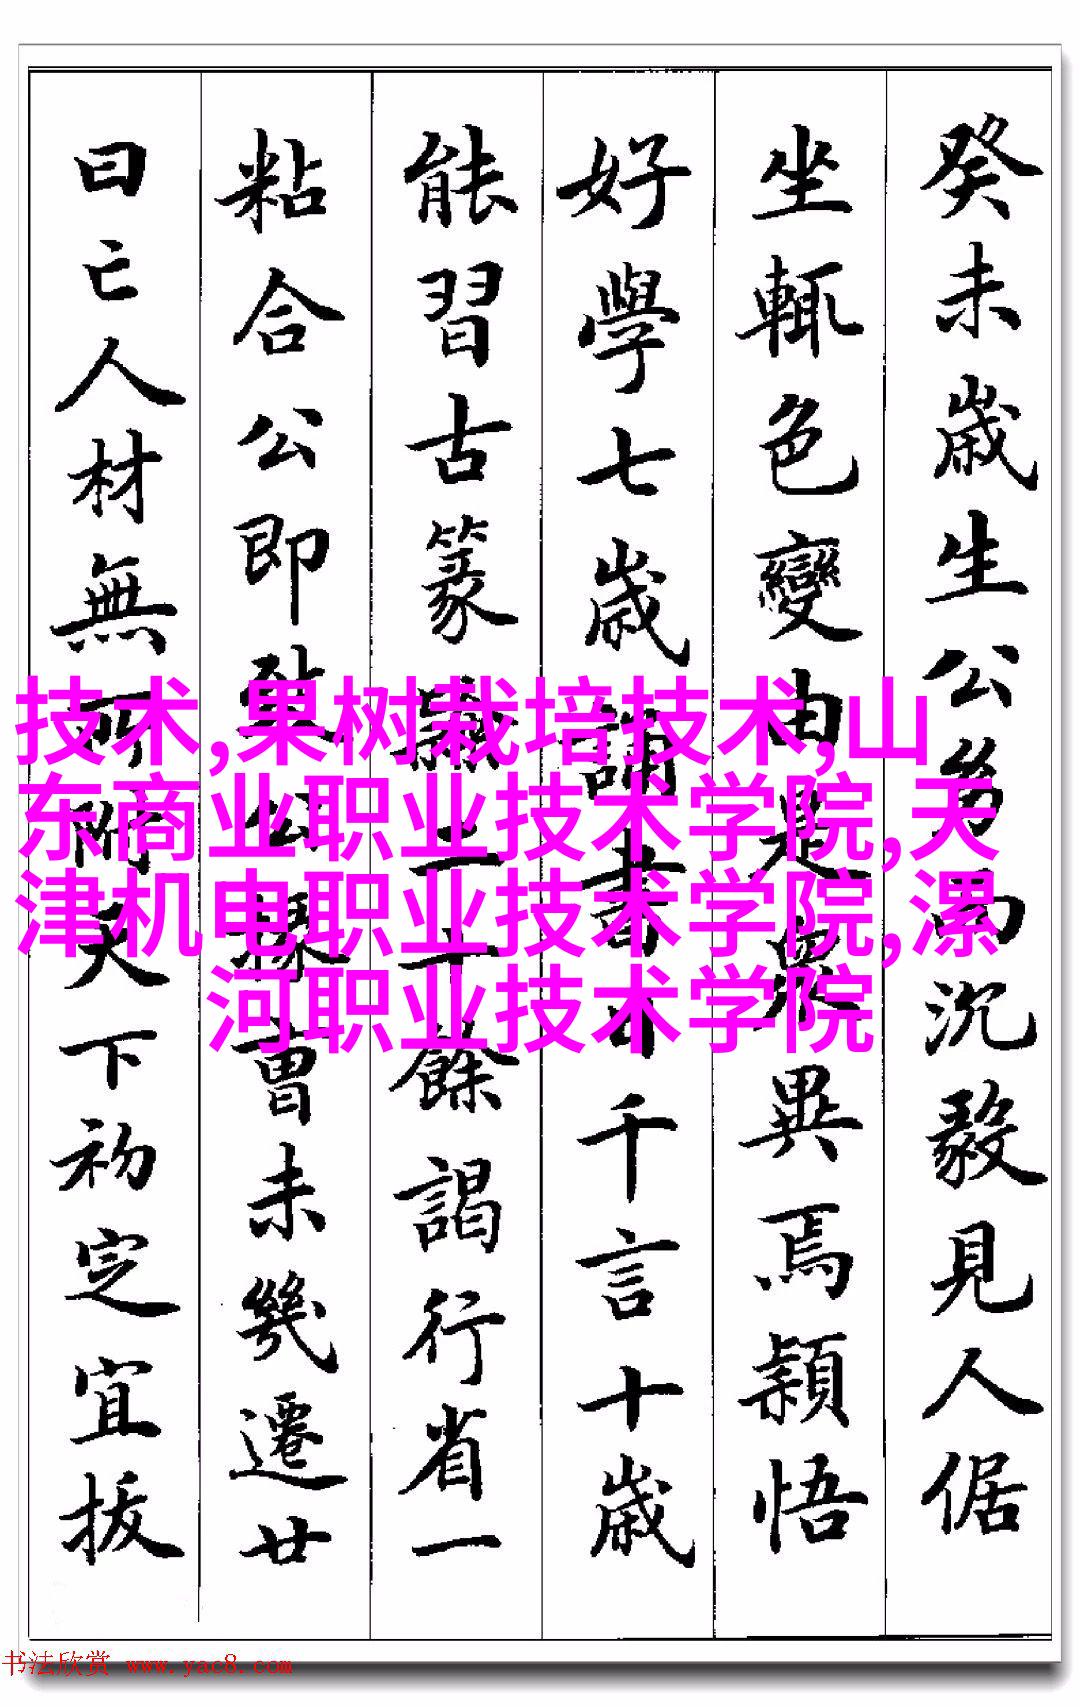 癸未歲生公幼而沉毅見人倨
坐輒色變由是衆異焉穎悟
好學七歲誦書日千言十歲
能習古篆二十餘謁行省一
粘合公即公掾曹未幾遷廿
曰亡人材無所附天下初定宜拔
技术,果树栽培技术,山
东商业职业技术学院,天
津机电职业技术学院,漯
河职业技术学院
书法欣赏 www.yac8.com